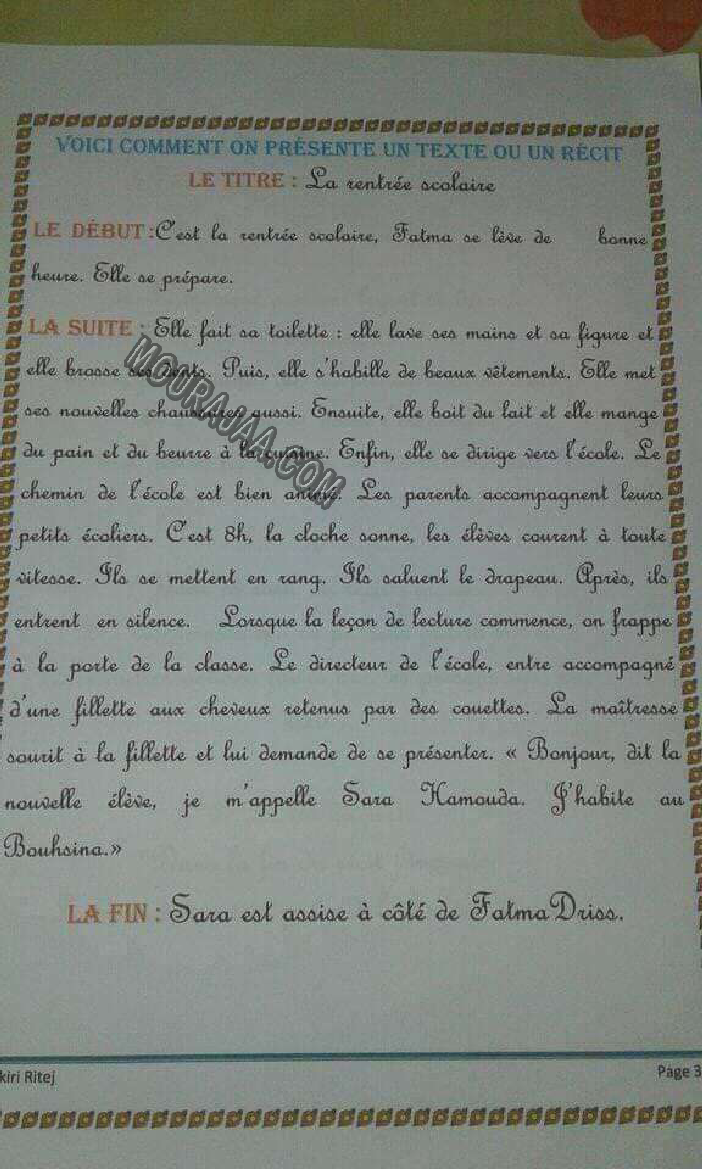 VOICI COMMENT ON PRÉSENTE UN TEXTE OU UN RÉCIT
LE TITRE : La rentrée scolaire
LE DÉBUT :C'est la rentrée scolaire, Fatma se lève de bonne
heure. Elle se prépare.
LA SUITE : Elle fait sa toilette : elle lave ses mains et sa figure et
elle brosse ses dents. Puis, elle s'habille de beaux vêtements. Elle met
ses nouvelles chaussures aussi. Ensuite, elle boit du lait et elle mange
du pain et du beurre à la cuisine. Enfin, elle se dirige vers l'école. Le
chemin de l'école est bien animé. Les parents accompagnent leurs
petits écoliers. C'est 8h, la cloche sonne, les élèves courent à toute
vitesse. Ils se mettent en rang. Ils saluent le drapeau. Après, ils
entrent en silence. Lorsque la leçon de lecture commence, on frappe
à la porte de la classe. Le directeur de l'école, entre accompagné
d'une fillette aux cheveux retenus par des couettes. La maîtresse
sourit à la fillette et lui demande de se présenter. « Bonjour, dit la
nouvelle élève, je m'appelle Sara Hamouda. J'habite au
Bouhsina.»
LA FIN : Sara est assise à côté de Fatma Driss.
kiri Ritej
Page 3
MOURAJAA.COM